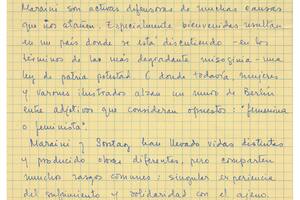 Maraini son activas defensoras de muchas causas
que nos atañen. Especialmente bienvenidas resultan
en un país donde se está discutiendo -en los
términos de las más degradante misoginia- una
ley de patria potestad. O donde todavía, mujeres
y varones ilustrados alzan un muro de Berlín
entre adjetivos que consideran opuestos: "femenina
o feminista".
Maraini y Sontag han llevado vidas distintas
y producido obras diferentes, pero comparten
muchos rasgos comunes: singular experiencia
del sufrimiento y solidaridad con el ajeno.